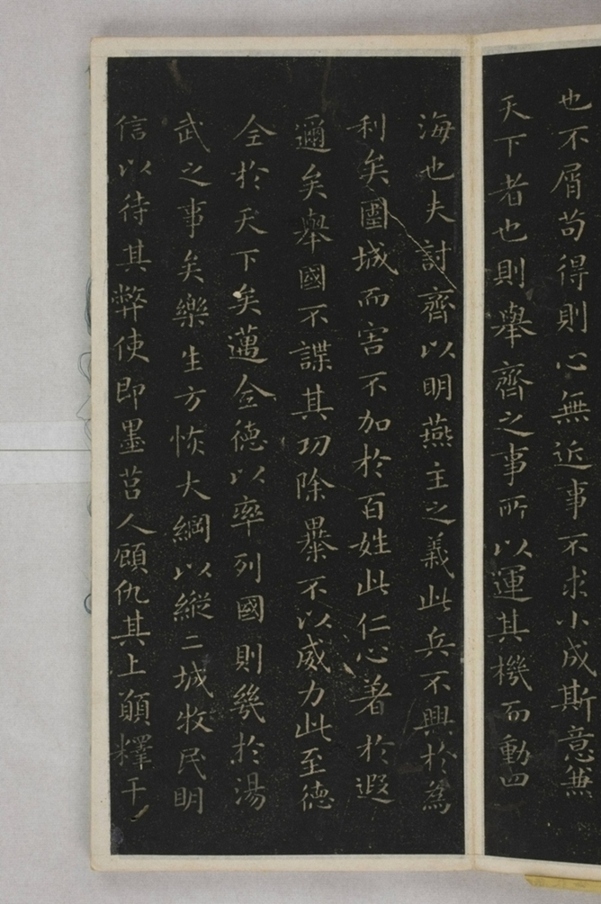 也不屑苟得則心無近事不求小成斯意兼
天下者也則舉齊之事所以運其機而動四
海也夫討齊以明燕主之義此兵不興於為
利矣圍城而害不加於百姓此仁心著於遐
邇矣舉國不謀其功除暴不以威力此至德
全於天下矣邁全德以率列國則幾於湯
武之事矣樂生方恢大綱以縱二城牧民明
信以待其弊使即墨莒人顧仇其上願釋干